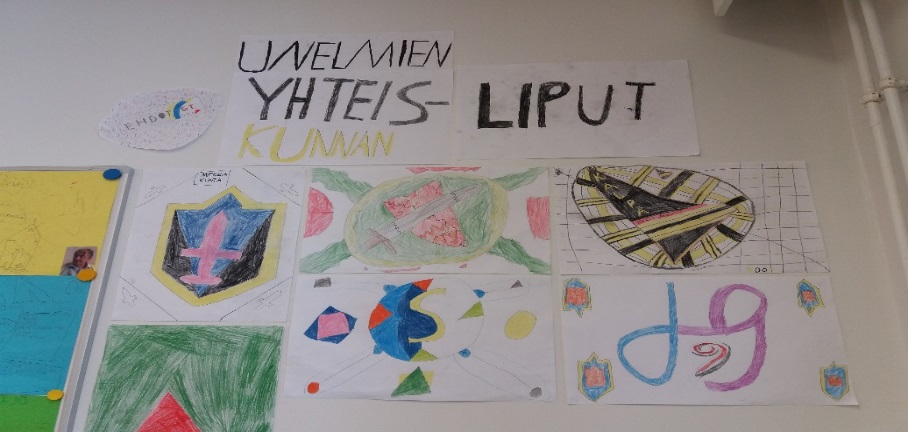 UNELMIEN
YHTEIS-
KUNNAN
LIPUT
S